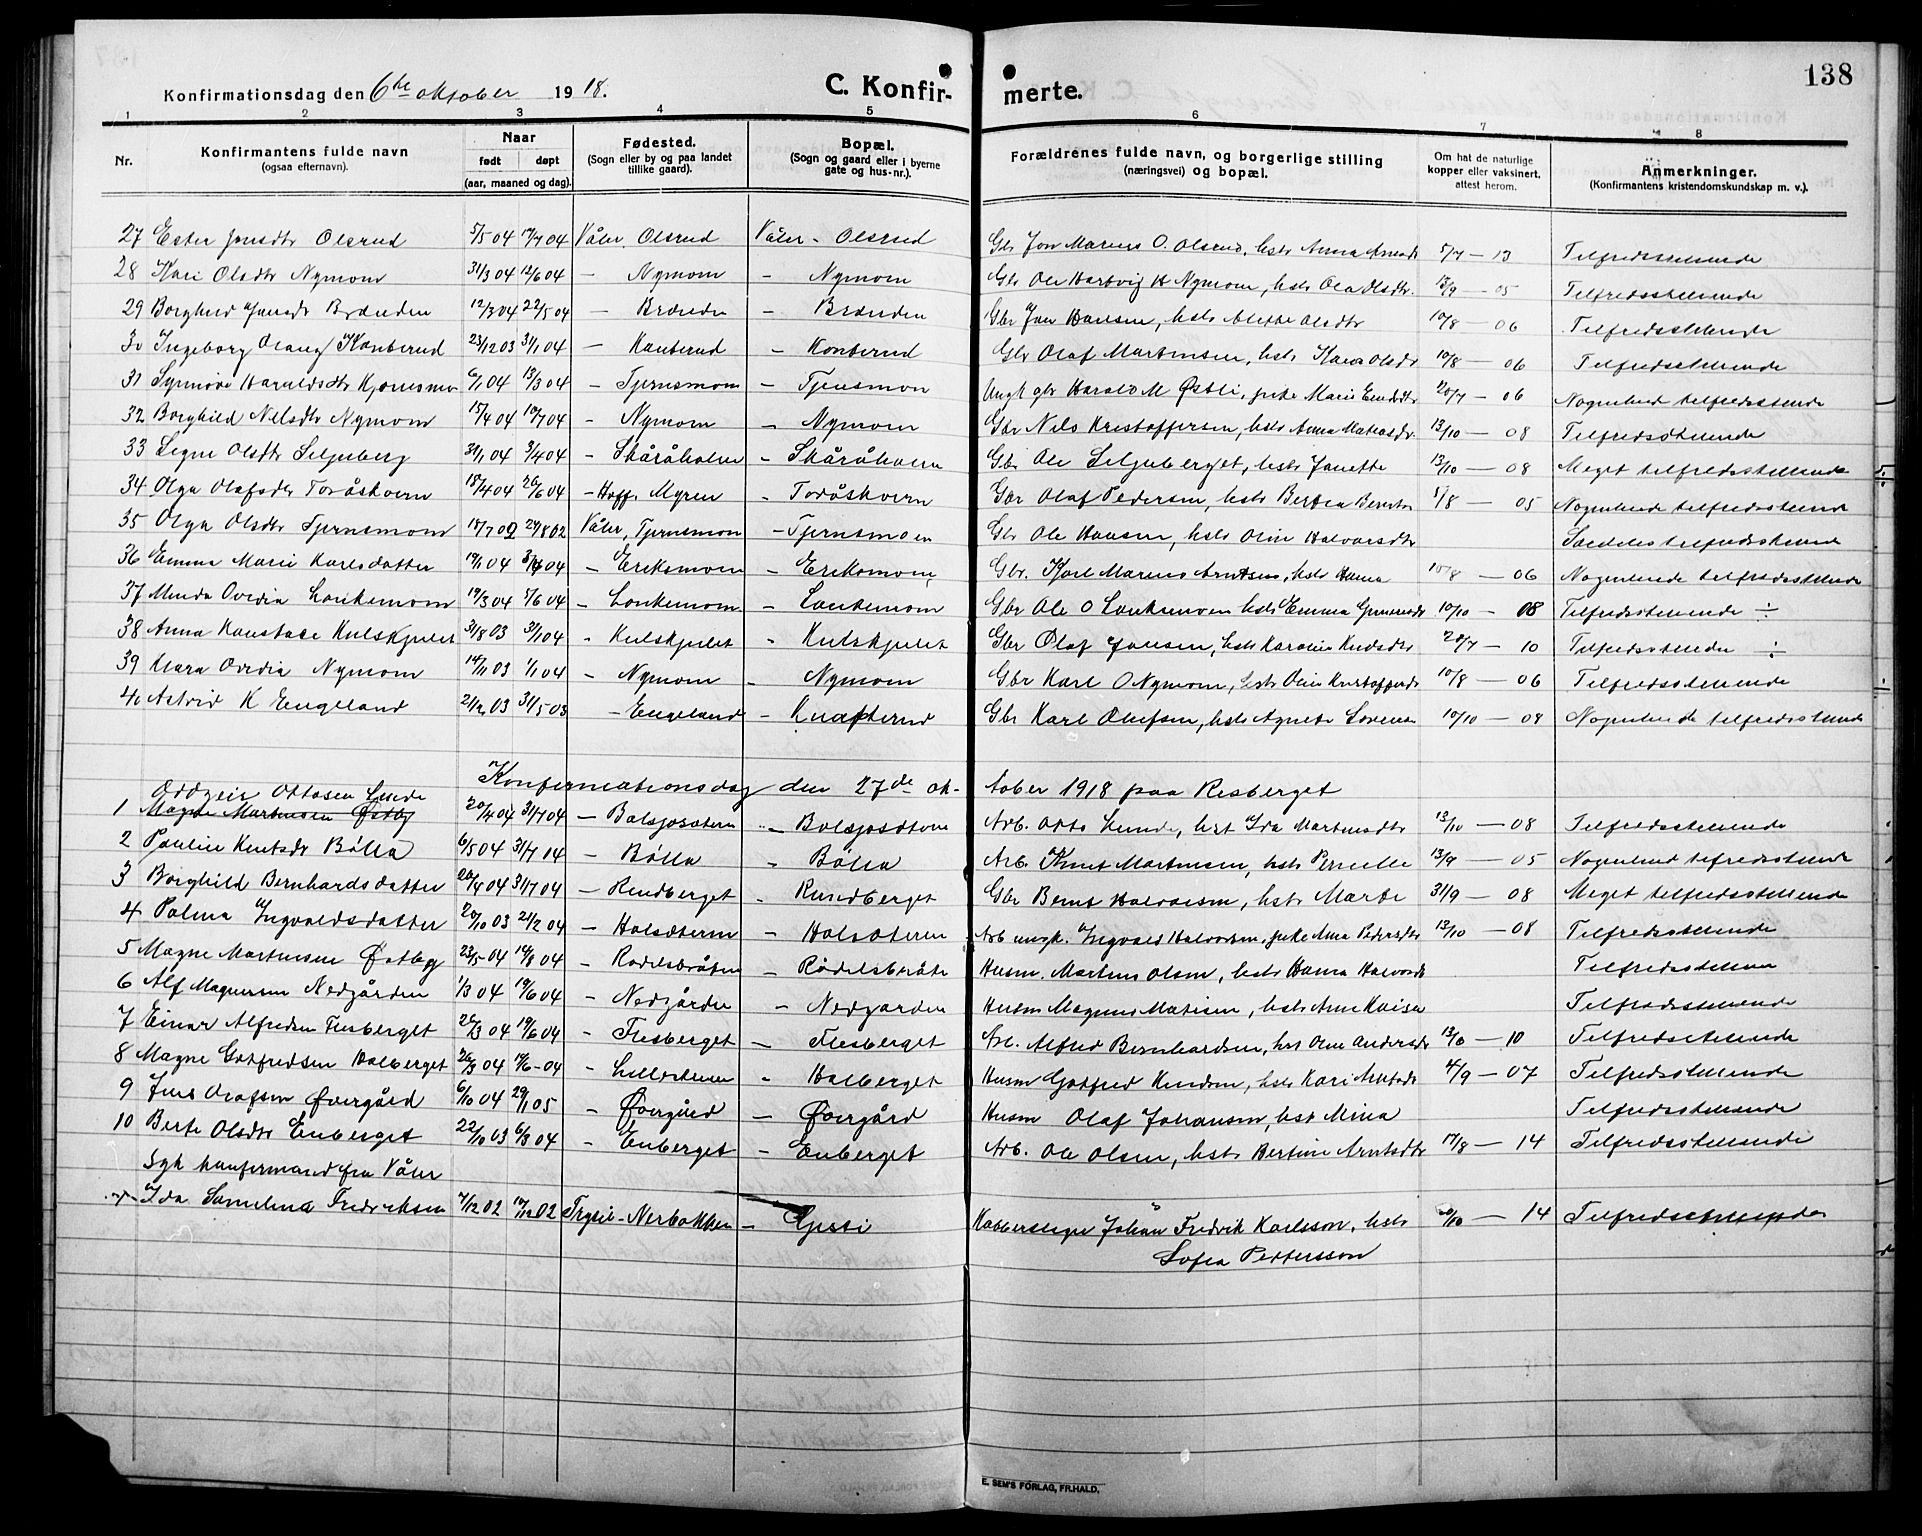 138
Konfirmationsdag den 6te oktober 1918. C. Konfir- merte.
1 2 3 4 5 6 7 8
Nr. Konfirmantens fulde navn (ogsaa efternavn). Naar født døpt (aar, maaned og dag). Fødested. (Sogn eller by og paa landet tillike gaard). Bopæl. (Sogn og gaard eller i byerne gate og hus-nr.). Forældrenes fulde navn, og borgerlige stilling (næringsvei) og bopæl. Om hat de naturlige kopper eller vaksinert, attest herom. Anmerkninger. (Konfirmantens kristendomskundskap m. v.).
27 Ester Jonsdtr Olsrud 5/5 04 17/7 04 Våler, Olsrud Våler - Olsrud Gbr Jon Marius O. Olsrud, hstr Anna 5/7 - 13 Tilfredsstillende
28 Kari Olsdtr Nymoen 31/3 04 12/6 04 - Nymoen - Nymoen Gbr Ole Hartvig H Nymoen, hstr Olsdtr. 13/9 - 05 Tilfredsstillende
29 Borghild Jansdtr Brænden 12/3 04 22/5 04 - Brænden - Brænden Gbr Jan Hansen, hstr Olsdtr 10/8 - 06 Tilfredsstillende
30 Ingeborg Olausd Konterud 23/12 03 31/1 04 - Konterud - Konterud Gbr Olaf Martinsen, hstr Kaia Olsdtr 10/8 - 06 Tilfredsstillende
31 Synnøve Haraldsdtr Kjernsmo 6/1 04 13/3 04 - Tjernsmoen - Tjernsmoen Ungk gbr Harald M Østli, pike Marie 20/7 - 06 Nogenlund tilfredsstillende
32 Borghild Nilsdtr Nymoen 15/4 04 10/7 04 - Nymoen - Nymoen Gbr Nils Kristoffersen, hstr Anna 13/10 - 08 Tilfredsstillende
33 Signe Olsdtr Siljuberg 31/1 04 3/4 04 - Skåråholen - Skåråholen Gbr Ole Siljuberget, hstr Janette 13/10 - 08 Meget tilfredsstillende
34 Olga Olafsdtr Toråskvern 18/4 04 26/6 04 - Hoff, Myren - Toråskvern Gbr Olaf Pedersen, hstr Bertea 1/8 - 05 Nogenlunde tilfredsstillende
35 Olga Olsdtr Tjernsmoen 18/7 02 24/8 02 Våler, Tjernsmoen - Tjernsmoen Gbr Ole Hansen, hstr Oline Halvorsdtr Særdeles tilfredsstillende
36 Emma Marie Karlsdatter 19/1 04 3/4 04 - Eriksmoen - Eriksmoen Gbr. Karl Marius Arntsen, hstr Hanna 10/8 - 06 Nogenlunde tilfredsstillende
37 Minda Ovedia Lankemoen 19/3 04 5/6 04 - Lankemoen - Lankemoen Gbr Ole O Lankemoen hstr Emma 10/10 - 08 Tilfredsstillende ÷
38 Anna Konstase Kulskjulet 31/8 03 31/1 04 - Kulskjulet - Kulskjulet Gbr Olaf Jonsen, hstr Karoline Knudsdtr 20/7 - 10 Tilfredsstillende ÷
39 Klara Ovedia Nymoen 14/11 03 1/1 04 - Nymoen - Nymoen Gbr Karl O Nymoen, hstr Oline 10/8 - 06 Tilfredsstillende
40 Astrid K Engeland 21/2 03 31/5 03 - Engeland - Knapterud Gbr Karl Olufsen, hstr Agnete 10/10 - 08 Nogenlunde tilfredsstillende
Konfirmationsdag den 27de oktober 1918 paa Risberget
Oddgeir Ottosen Lunde
1 Magne Martinsen Østby 20/4 04 31/7 04 - Bolsjosætern - Bolsjosætern Arb. Otto Lunde, hst Ida Martinsdtr 13/10 - 08 Tilfredsstillende
2 Pauline Knutsdtr Bölla 6/5 04 31/7 04 - Bölla - Bölla Arb. Knut Martinsen, hstr Pernille 13/9 - 05 Nogenlund tilfredsstillende
3 Borghild Bernhardsdatter 20/4 04 31/7 04 - Rundberget - Rundberget Gbr Bernt Halvorsen, hstr Marte 31/9 - 08 Meget tilfredsstillende
4 Palma Ingvaldsdatter 20/10 03 21/2 04 - Holsæteren - Holsæteren Arb ungk. Ingvald Halvorsen, pike Anna Pedersdtr 13/10 - 08 Tilfredsstillende
5 Magne Martinsen Østby 23/5 04 14/8 04 - Rødelsbråten - Rødelsbråte Husm. Martin Olsen, hstr Hanna Halvorsdtr Tilfredsstillende
6 Alf Magnussen Nedgården 1/3 04 19/6 04 - Nedgården - Nedgarden Husm Magnus Matisen, hstr Anne Tilfredsstillende
7 Einar Alfredsen Flesberget 26/3 04 19/6 04 - Flesberget - Flesberget Arb. Alfred Bernhardsen, hst Oline Andersdtr 13/8 - 10 Tilfredsstillende
8 Magne Gotfredsen Halberget 26/3 04 19/6 - 04 - - Halberget Husm Gotfred Knudsen, hstr Kari 4/9 - 07 Tilfredsstillende
9 Jens Olafsen Øvergård 6/10 04 29/1 05 - Øvergård - Øvergård Husm Olaf Johansen, hst Mina Tilfredsstillende
10 Berte Olsdtr Enberget 22/10 03 6/3 04 - Enberget - Enberget Arb. Ole Olsen, hstr Bertine Arntsdtr 17/8 - 14 Tilfredsstillende
Syk konfirmand fra Våler
Ida Samelina Fredriksen 7/12 02 19/12 02 Trysil - Nerbakken - Gjesti Johan Fredrik Karlsson, hstr 20/10 - 14 Tilfredsstillende
Sofia Pettersson
E. SEM'S FORLAG, FR.HALD.